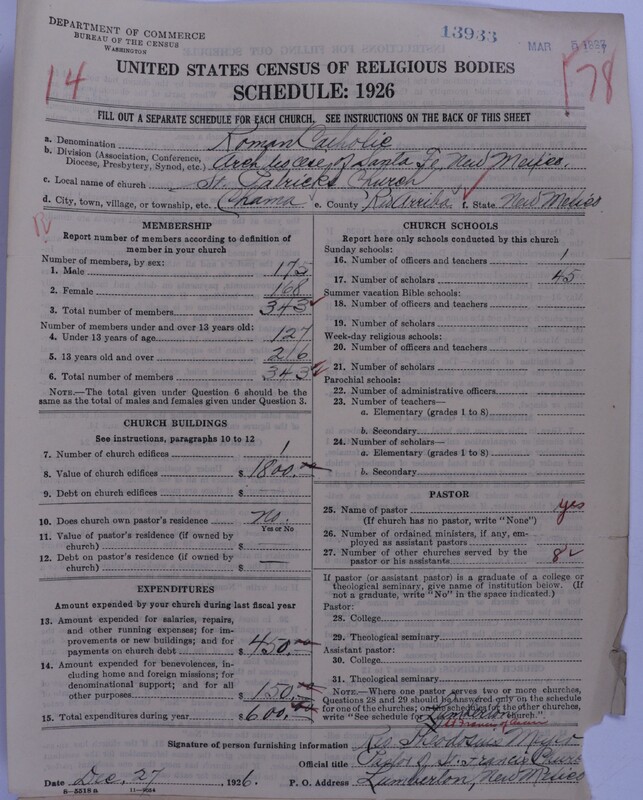 DEPARTMENT OF COMMERCE
BUREAU OF THE CENSUS
WASHINGTON
13933
MAR 5 1927
14
178
UNITED STATES CENSUS OF RELIGIOUS BODIES
SCHEDULE: 1926
FILL OUT A SEPARATE SCHEDULE FOR EACH CHURCH. SEE INSTRUCTIONS ON THE BACK OF THIS SHEET
a. Denomination Roman Catholic
b. Division (Association, Conference, Diocese, Presbytery, Synod, etc.) Archdiocese of Santa Fe, New Mexico.
c. Local name of church St. Patrick's Church
d. City, town, village, or township, etc. Chama e. County Rio Arriba f. State New Mexico
MEMBERSHIP
Report number of members according to definition of member in your church
Number of members, by sex:
1. Male 175
2. Female 168
3. Total number of members 343
Number of members under and over 13 years old:
4. Under 13 years of age 127
5. 13 years old and over 216
6. Total number of members 343
NOTE.—The total given under Question 6 should be the same as the total of males and females given under Question 3.
CHURCH BUILDINGS
See instructions, paragraphs 10 to 12
7. Number of church edifices 1
8. Value of church edifices $ 1800.
9. Debt on church edifices $
10. Does church own pastor's residence no.
Yes or No
11. Value of pastor's residence (if owned by church) $
12. Debt on pastor's residence (if owned by church) $ —
EXPENDITURES
Amount expended by your church during last fiscal year
13. Amount expended for salaries, repairs, and other running expenses; for improvements or new buildings; and for payments on church debt $ 450.
14. Amount expended for benevolences, including home and foreign missions; for denominational support; and for all other purposes $ 150.
15. Total expenditures during year $ 600.
CHURCH SCHOOLS
Report here only schools conducted by this church
Sunday schools:
16. Number of officers and teachers 1
17. Number of scholars 45
Summer vacation Bible schools:
18. Number of officers and teachers
19. Number of scholars
Week-day religious schools:
20. Number of officers and teachers
21. Number of scholars
Parochial schools:
22. Number of administrative officers
23. Number of teachers—
a. Elementary (grades 1 to 8)
b. Secondary
24. Number of scholars—
a. Elementary (grades 1 to 8)
b. Secondary
PASTOR
25. Name of pastor yes
(If church has no pastor, write "None")
26. Number of ordained ministers, if any, employed as assistant pastors
27. Number of other churches served by the pastor or his assistants 8
If pastor (or assistant pastor) is a graduate of a college or theological seminary, give name of institution below. (If not a graduate, write "No" in the space indicated.)
Pastor:
28. College
29. Theological seminary
Assistant pastor:
30. College
31. Theological seminary
NOTE.—Where one pastor serves two or more churches, Questions 28 and 29 should be answered only on the schedule for one of the churches; on the schedules for the other churches, write "See schedule for Lumberton church."
Signature of person furnishing information Rev. Theodosius Meyer
Official title Pastor of St. Francis Church
Date Dec. 27 1926. P. O. Address Lumberton, New Mexico
8—5518 a 11—9054